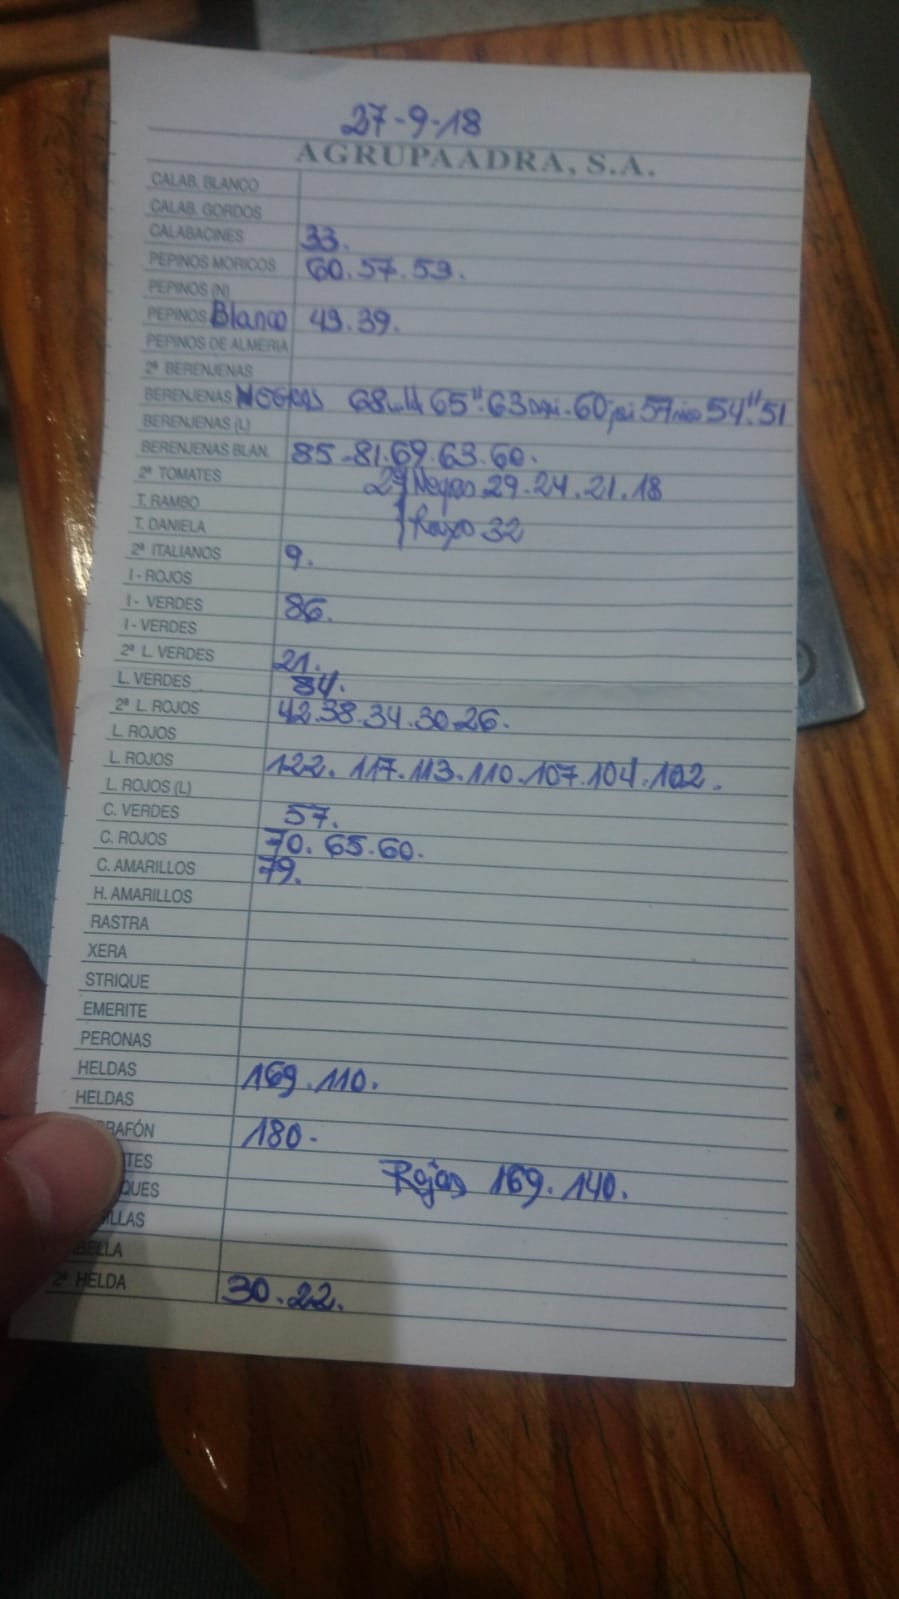 27-9-18
AGRUPAADRA, S.A.
CALAB. BLANCO
CALAB. GORDOS
CALABACINES 33.
PEPINOS MORICOS 60.57.53.
PEPINOS (N)
PEPINOS Blanco 43.39.
PEPINOS DE ALMERIA
2ª BERENJENAS
BERENJENAS NEGRAS 68 65".63 60 57 54".51
BERENJENAS (L)
BERENJENAS BLAN. 85-81.69.63.60.
2ª TOMATES 2ª Negras 29.24.21.18
T. RAMBO
T. DANIELA Rayas 32
2ª ITALIANOS 9.
I - ROJOS
I - VERDES 86.
I - VERDES
2ª L. VERDES 21.
L. VERDES 84.
2ª L. ROJOS 42.38.34.30.26.
L. ROJOS
L. ROJOS 122. 117.113.110.107.104.102.
L. ROJOS (L)
C. VERDES 57.
C. ROJOS 70.65.60.
C. AMARILLOS 79.
H. AMARILLOS
RASTRA
XERA
STRIQUE
EMERITE
PERONAS
HELDAS 169.110.
HELDAS
RAFÓN 180-
TES Rojas 169.140.
QUES
ILLAS
BELLA
2ª HELDA 30.22.